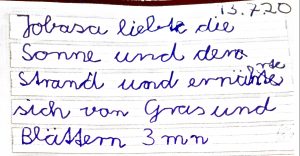 13.7.20
Jobasa liebte die
Sonne und den
Strand und ernährte
sich von Gras und
Blättern 3 mn